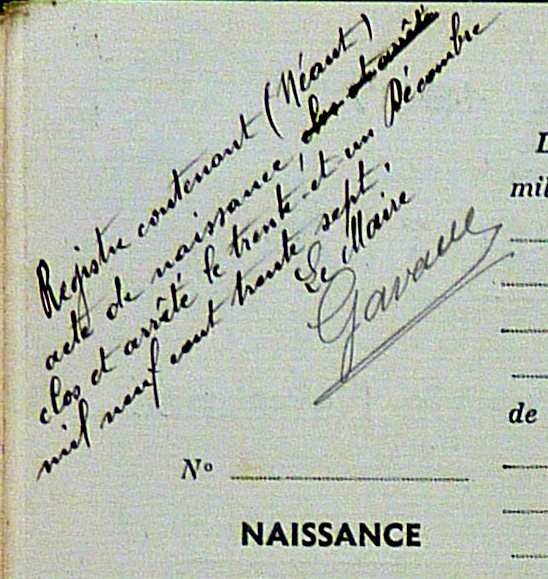 Registre contenant (Néant)
acte de naissance, clos et arrêté
clos et arrêté le trente et un Décembre
mil neuf cent trente sept,
Le Maire
mil
de
N°
NAISSANCE